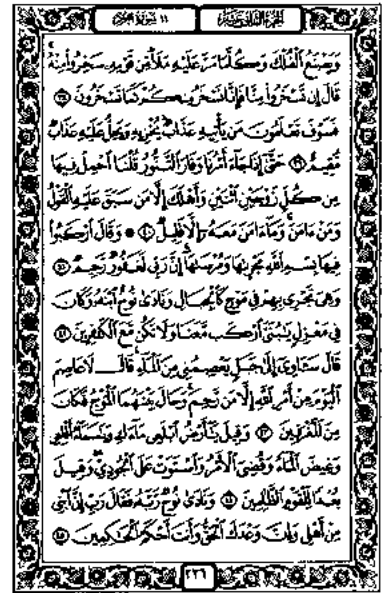 الجزء الثاني عشر
١١ سورة هود
وَيَصْنَعُ ٱلْفُلْكَ وَكُلَّمَا مَرَّ عَلَيْهِ مَلَأٌ مِّن قَوْمِهِۦ سَخِرُوا۟ مِنْهُ
قَالَ إِن تَسْخَرُوا۟ مِنَّا فَإِنَّا نَسْخَرُ مِنكُمْ كَمَا تَسْخَرُونَ ٣٨
فَسَوْفَ تَعْلَمُونَ مَن يَأْتِيهِ عَذَابٌ يُخْزِيهِ وَيَحِلُّ عَلَيْهِ عَذَابٌ
مُّقِيمٌ ٣٩ حَتَّىٰٓ إِذَا جَآءَ أَمْرُنَا وَفَارَ ٱلتَّنُّورُ قُلْنَا ٱحْمِلْ فِيهَا
مِن كُلٍّ زَوْجَيْنِ ٱثْنَيْنِ وَأَهْلَكَ إِلَّا مَن سَبَقَ عَلَيْهِ ٱلْقَوْلُ
وَمَنْ ءَامَنَ وَمَآ ءَامَنَ مَعَهُۥٓ إِلَّا قَلِيلٌ ٤٠ ۞ وَقَالَ ٱرْكَبُوا۟
فِيهَا بِسْمِ ٱللَّهِ مَجْر۪ىٰهَا وَمُرْسَىٰهَآ إِنَّ رَبِّى لَغَفُورٌ رَّحِيمٌ ٤١
وَهِىَ تَجْرِى بِهِمْ فِى مَوْجٍ كَٱلْجِبَالِ وَنَادَىٰ نُوحٌ ٱبْنَهُۥ وَكَانَ
فِى مَعْزِلٍ يَـٰبُنَىَّ ٱرْكَب مَّعَنَا وَلَا تَكُن مَّعَ ٱلْكَـٰفِرِينَ ٤٢
قَالَ سَـَٔاوِىٓ إِلَىٰ جَبَلٍ يَعْصِمُنِى مِنَ ٱلْمَآءِ قَالَ لَا عَاصِمَ
ٱلْيَوْمَ مِنْ أَمْرِ ٱللَّهِ إِلَّا مَن رَّحِمَ وَحَالَ بَيْنَهُمَا ٱلْمَوْجُ فَكَانَ
مِنَ ٱلْمُغْرَقِينَ ٤٣ وَقِيلَ يَـٰٓأَرْضُ ٱبْلَعِى مَآءَكِ وَيَـٰسَمَآءُ أَقْلِعِى
وَغِيضَ ٱلْمَآءُ وَقُضِىَ ٱلْأَمْرُ وَٱسْتَوَتْ عَلَى ٱلْجُودِىِّ وَقِيلَ
بُعْدًا لِّلْقَوْمِ ٱلظَّـٰلِمِينَ ٤٤ وَنَادَىٰ نُوحٌ رَّبَّهُۥ فَقَالَ رَبِّ إِنَّ ٱبْنِى
مِنْ أَهْلِى وَإِنَّ وَعْدَكَ ٱلْحَقُّ وَأَنتَ أَحْكَمُ ٱلْحَـٰكِمِينَ ٤٥
٢٢٦